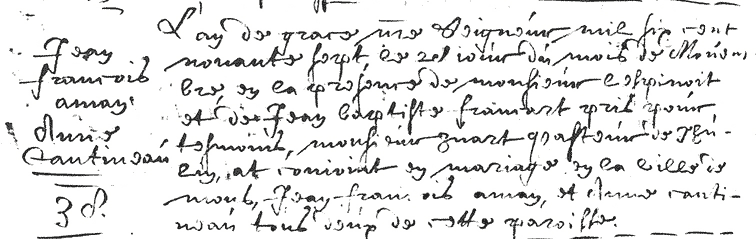 Jean
françois
aman
Anne
Cantineau
38.
L'an de grace nre Seigneur mil six cent
novante sept le 21 iour du mois de Novem-
bre en la présence de monsieur lespinoit
et de Jean baptiste framart pris pour
tesmoins, monsieur huart pasteur de
lin, at conioint en mariage en la ville de
mons, Jean françois aman, et Anne canti-
neau tous deux de cette paroisse.